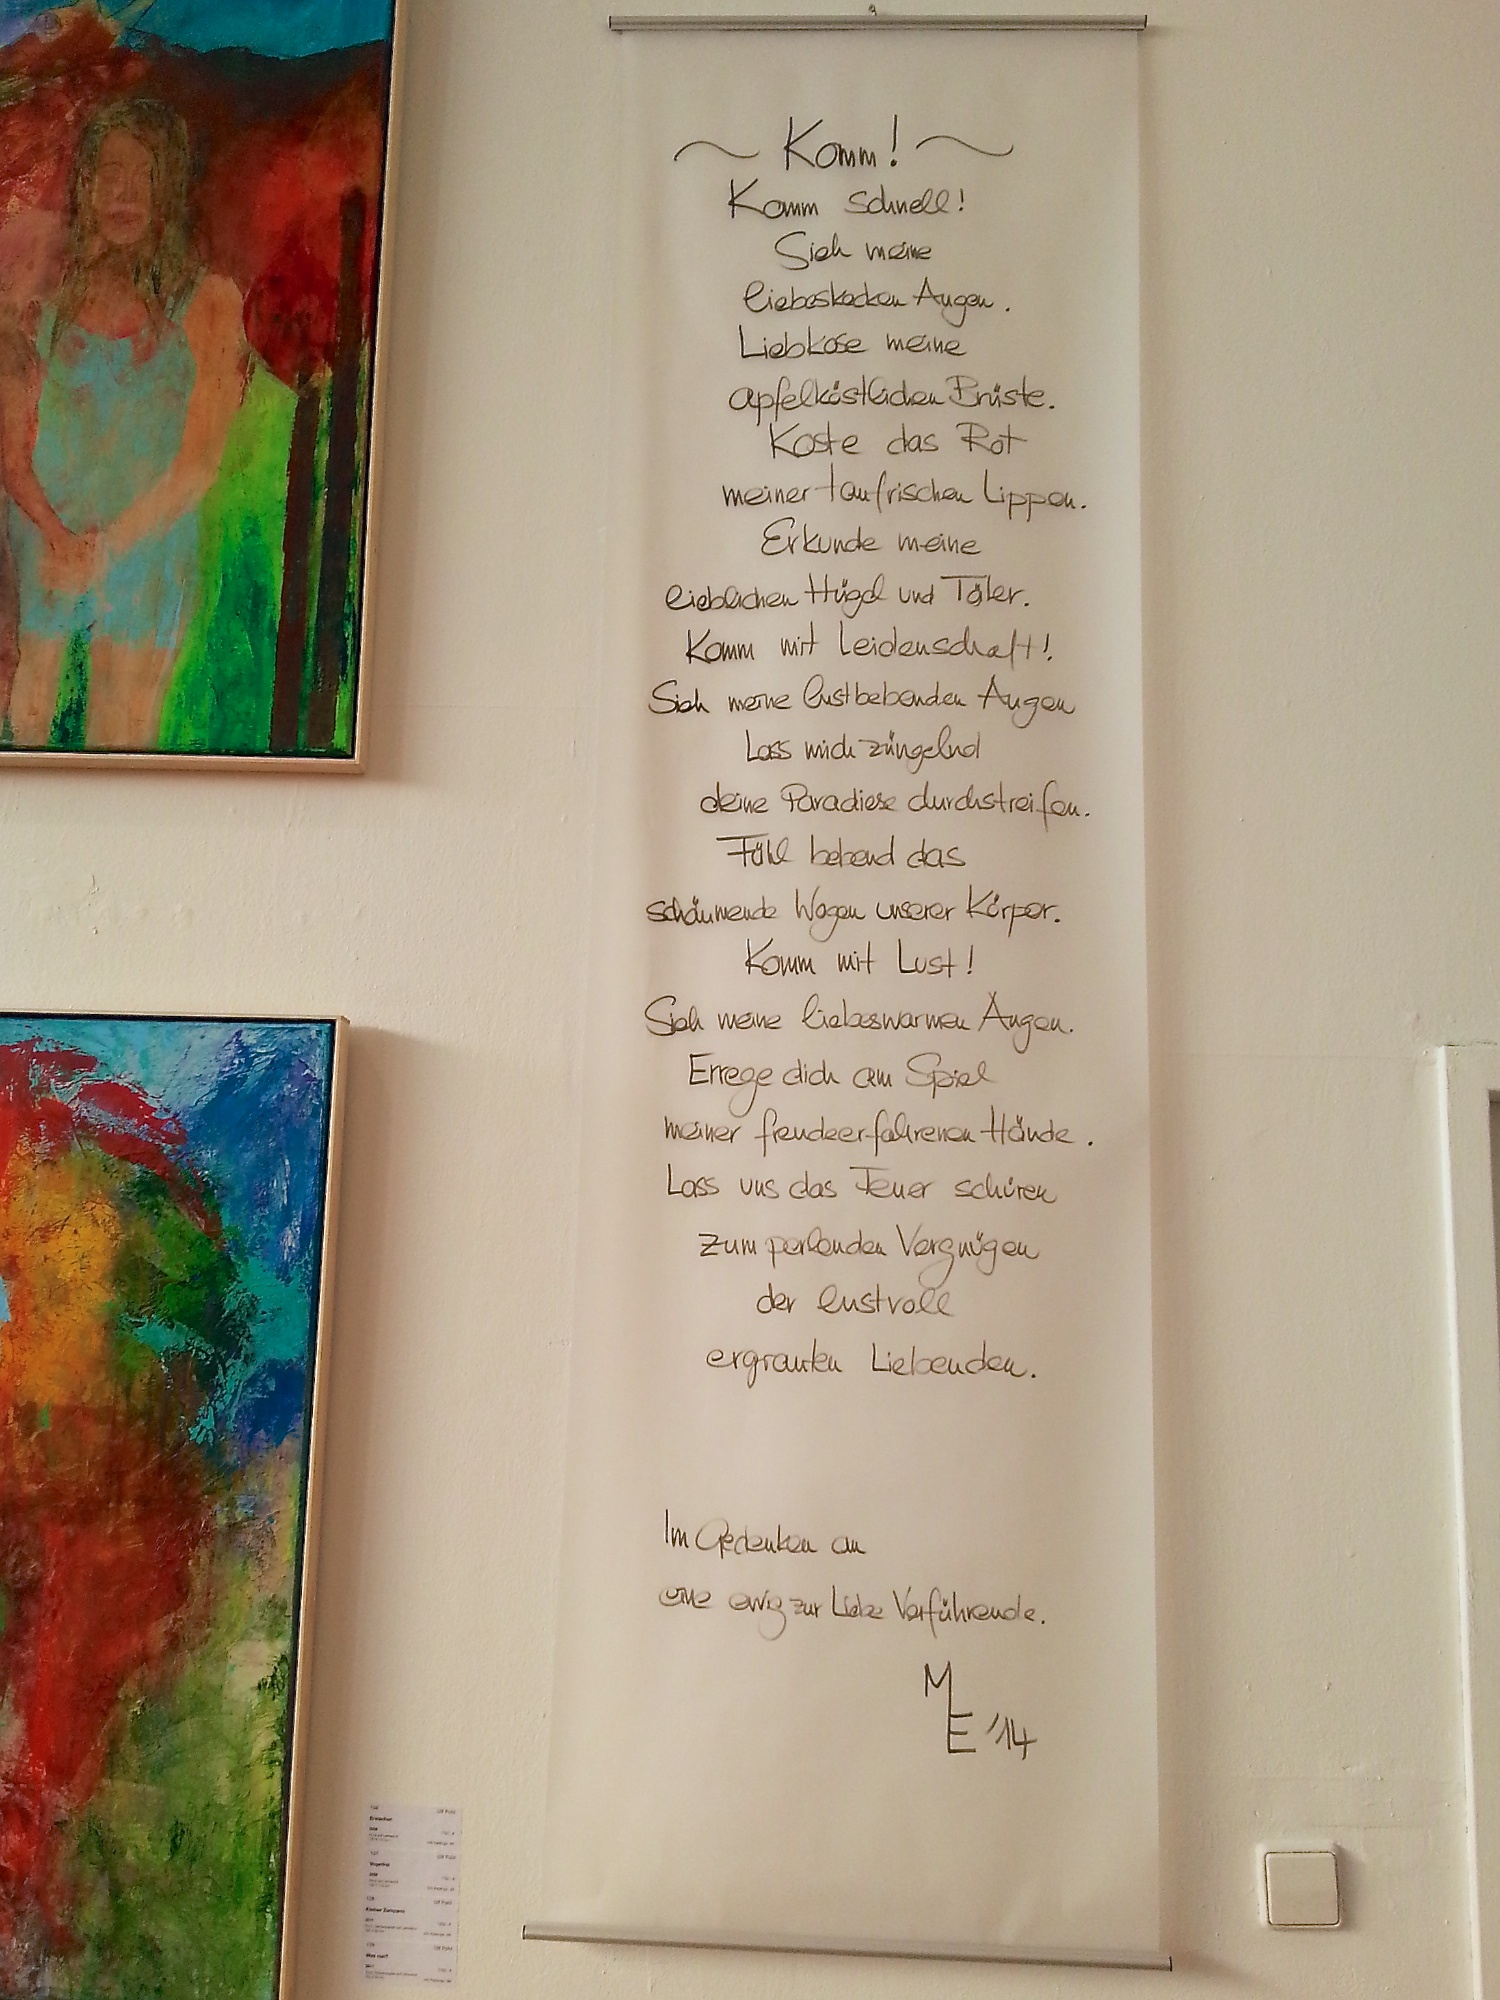 ~ Komm! ~
Komm schnell!
Sieh meine
liebeskecken Augen.
Liebkose meine
apfelköstlichen Brüste.
Koste das Rot
meiner taufrischen Lippen.
Erkunde meine
lieblichen Hügel und Täler.
Komm mit Leidenschaft!
Sieh meine lustbebenden Augen
Lass mich züngelnd
deine Paradiese durchstreifen.
Fühl bebend das
schäumende Wogen unserer Körper.
Komm mit Lust!
Sieh meine liebeswarmen Augen.
Errege dich am Spiel
meiner freudeerfahrenen Hände.
Lass uns das Feuer schüren
zum perlenden Vergnügen
der lustvoll
ergrauten Liebenden.
Im Gedenken an
eine ewig zur Liebe Verführende.
ME '14